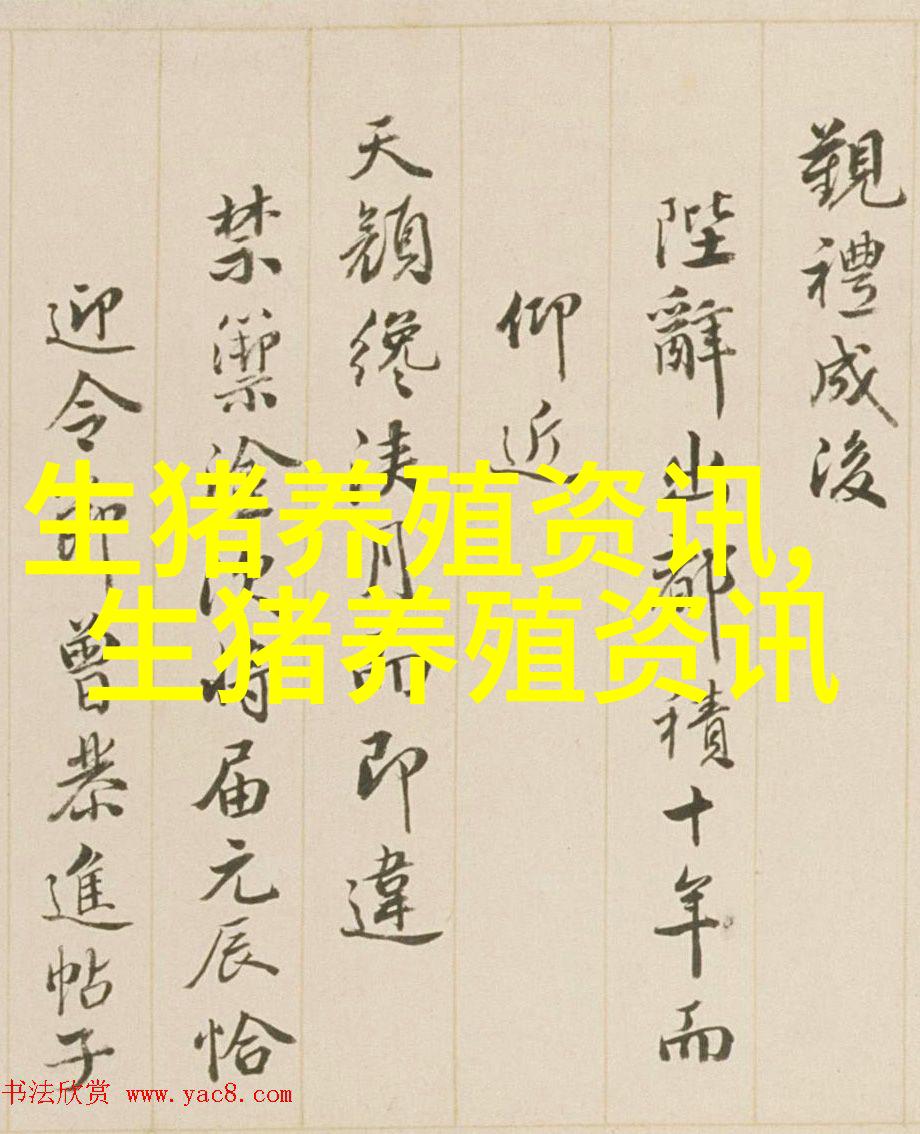 觐禮成後
陛辭出都積十年而
仰近
天顔纔浹月而即違
禁籞
届元辰恰
迎令節曾恭進帖子
生猪养殖资讯,
生猪养殖资讯
书法欣赏 www.yac8.com